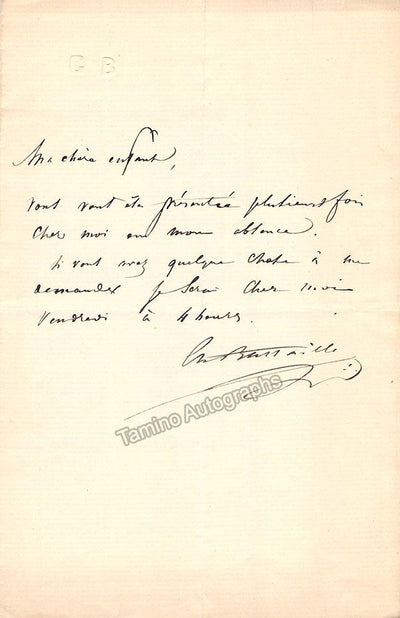 G B
Ma chère enfant,
vous vous êtes présentée plusieurs fois
chez moi en mon absence.
Si vous avez quelque chose à me
demander je serai chez moi
Vendredi à 4 heures.
Ch Battaille
Tamino Autographs